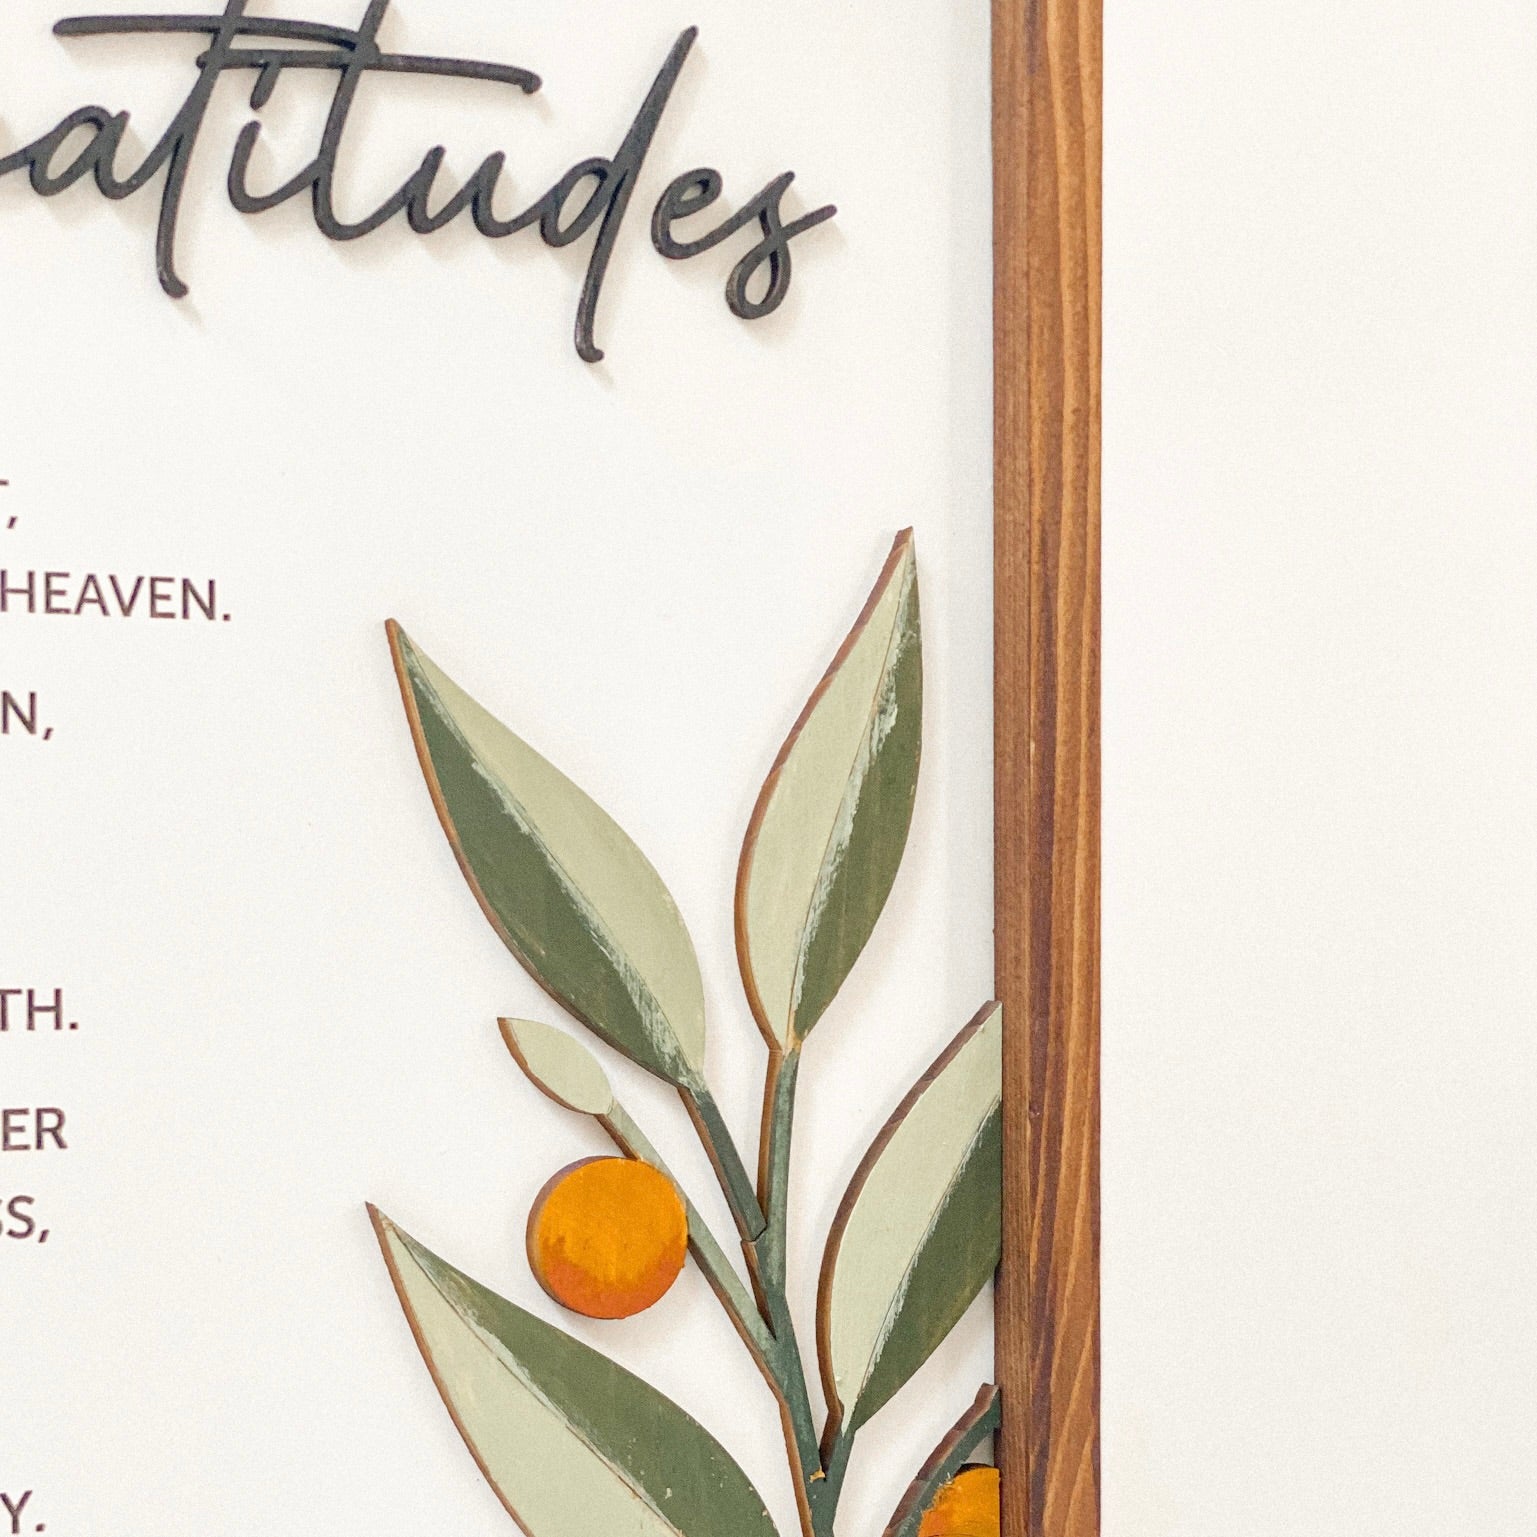 atitudes
T,
HEAVEN.
N,
TH.
ER
SS,
Y.